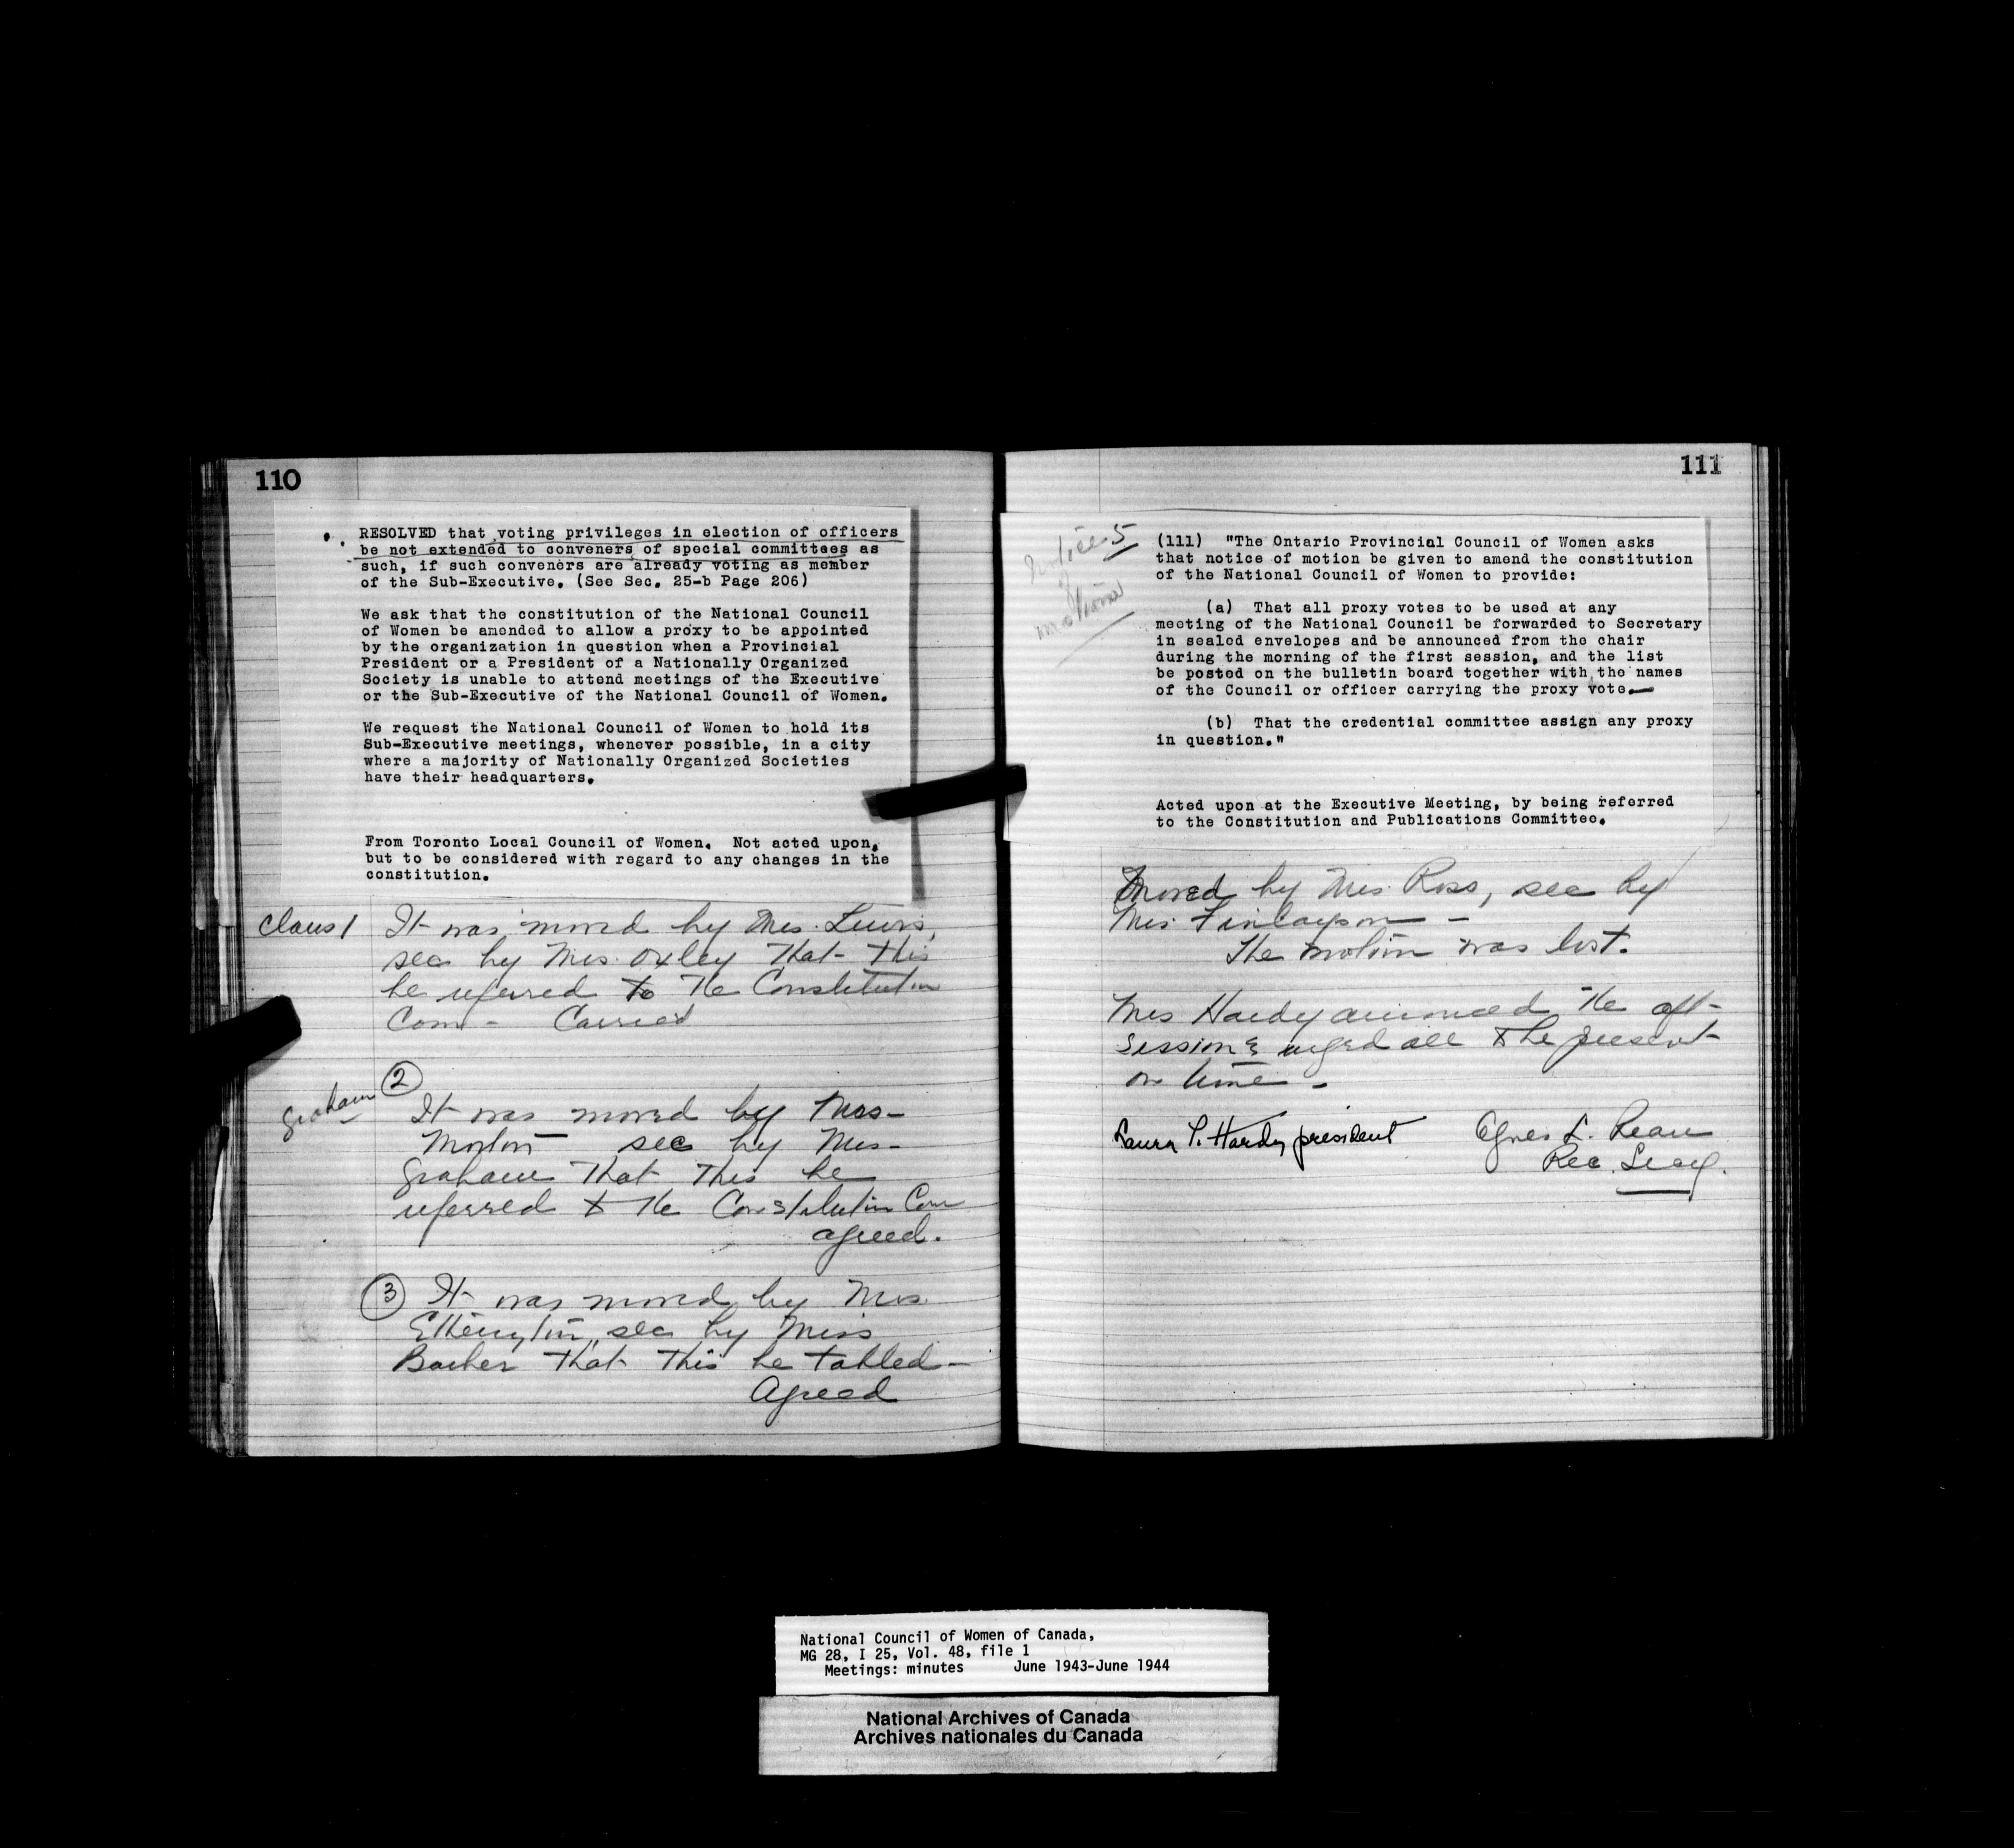 110
RESOLVED that voting privileges in election of officers
be not extended to conveners of special committees as
such, if such conveners are already voting as member
of the Sub-Executive. (See Sec. 25-b Page 206)
We ask that the constitution of the National Council
of Women be amended to allow a proxy to be appointed
by the organization in question when a Provincial
President or a President of a Nationally Organized
Society is unable to attend meetings of the Executive
or the Sub-Executive of the National Council of Women.
We request the National Council of Women to hold its
Sub-Executive meetings, whenever possible, in a city
where a majority of Nationally Organized Societies
have their headquarters.
From Toronto Local Council of Women. Not acted upon,
but to be considered with regard to any changes in the
constitution.
Claus 1
It was moved by Mrs. Lewis,
sec by Mrs. Oxley that this
be referred to the Constitution
Com - Carried
2
Graham
It was moved by Mrs-
sec by Mrs-
Graham that this be
referred to the Constitution Com
agreed.
3 It was moved by Mrs.
Etherington, sec by Miss
Barber that this be tabled-
Agreed
111
Notice 5
of
motion
(111) "The Ontario Provincial Council of Women asks
that notice of motion be given to amend the constitution
of the National Council of Women to provide:
(a) That all proxy votes to be used at any
meeting of the National Council be forwarded to Secretary
in sealed envelopes and be announced from the chair
during the morning of the first session, and the list
be posted on the bulletin board together with the names
of the Council or officer carrying the proxy vote.—
(b) That the credential committee assign any proxy
in question."
Acted upon at the Executive Meeting, by being referred
to the Constitution and Publications Committee.
Moved by Mrs. Ross, sec by
Mrs. Finlayson -
The motion was lost.
Mrs Hardy announced the aft-
session & urged all to be present
on time -
Laura P. Hardy president
Agnes L.
Rec. Secy.
National Council of Women of Canada,
MG 28, I 25, Vol. 48, file 1
Meetings: minutes June 1943-June 1944
National Archives of Canada
Archives nationales du Canada